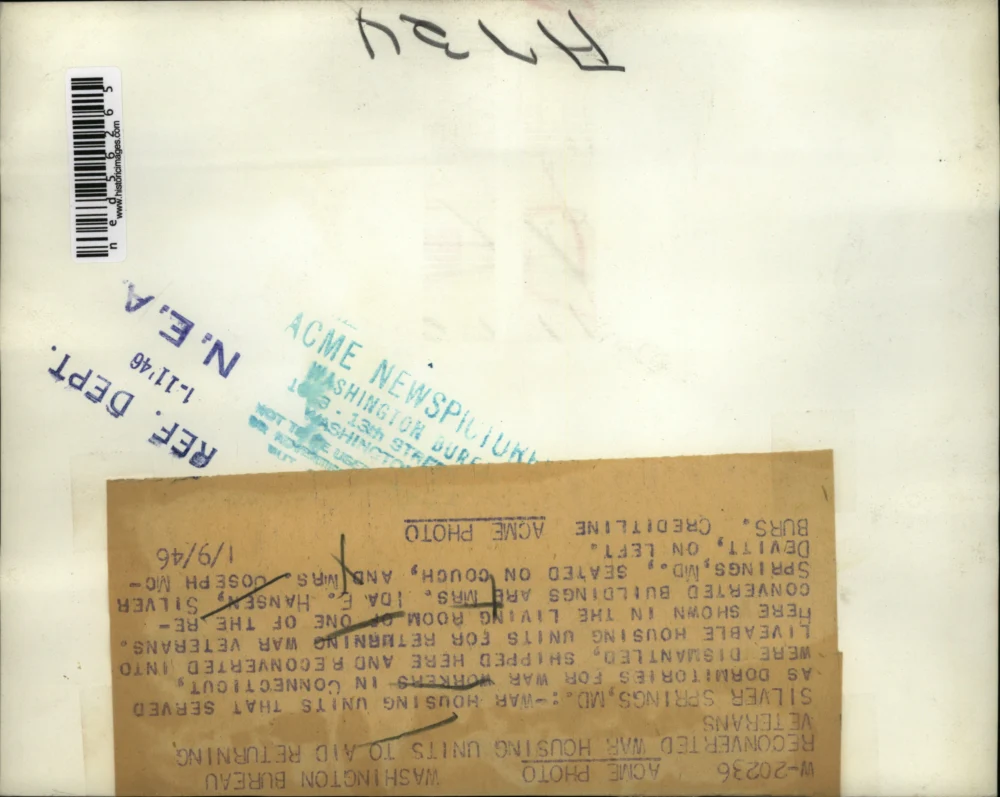 n e d 5 6 2 6 5
www.historicimages.com
N.E.A.
1-11'46
REF. DEPT.
ACME NEWSPICTURE
WASHINGTON BUR
13th STREE
WASHINGTON
NOT TO BE USED
W-20236 ACME PHOTO WASHINGTON BUREAU
RECONVERTED WAR HOUSING UNITS TO AID RETURNING
VETERANS
SILVER SPRINGS, MD.:-WAR HOUSING UNITS THAT SERVED
AS DORMITORIES FOR WAR WORKERS IN CONNECTICUT,
WERE DISMANTLED, SHIPPED HERE AND RECONVERTED INTO
LIVEABLE HOUSING UNITS FOR RETURNING WAR VETERANS.
HERE SHOWN IN THE LIVING ROOM OF ONE OF THE RE-
CONVERTED BUILDINGS ARE MRS. IDA E. HANSEN, SILVER
SPRINGS, MD., SEATED ON COUCH, AND MRS. JOSEPH MC-
DEVITT, ON LEFT.
BURS. CREDITLINE ACME PHOTO 1/9/46